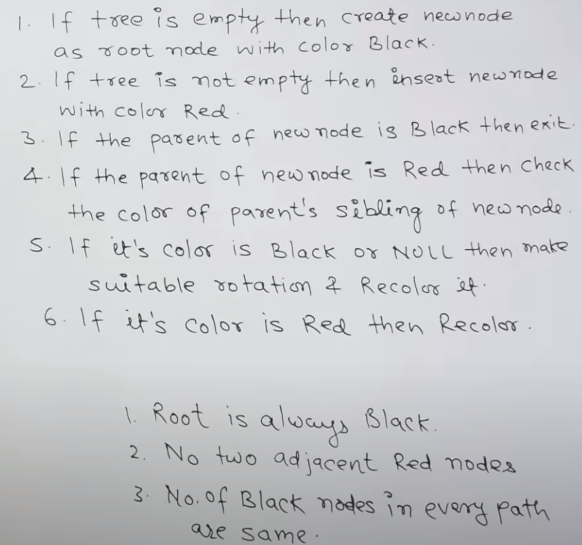 1. If tree is empty then create newnode
as root node with color Black.
2. If tree is not empty then insert newnode
with color Red.
3. If the parent of newnode is Black then exit.
4. If the parent of newnode is Red then check
the color of parent's sibling of newnode.
5. If it's color is Black or NULL then make
suitable rotation & Recolor it.
6. If it's color is Red then Recolor.
1. Root is always Black.
2. No two adjacent Red nodes
3. No. of Black nodes in every path
are same.